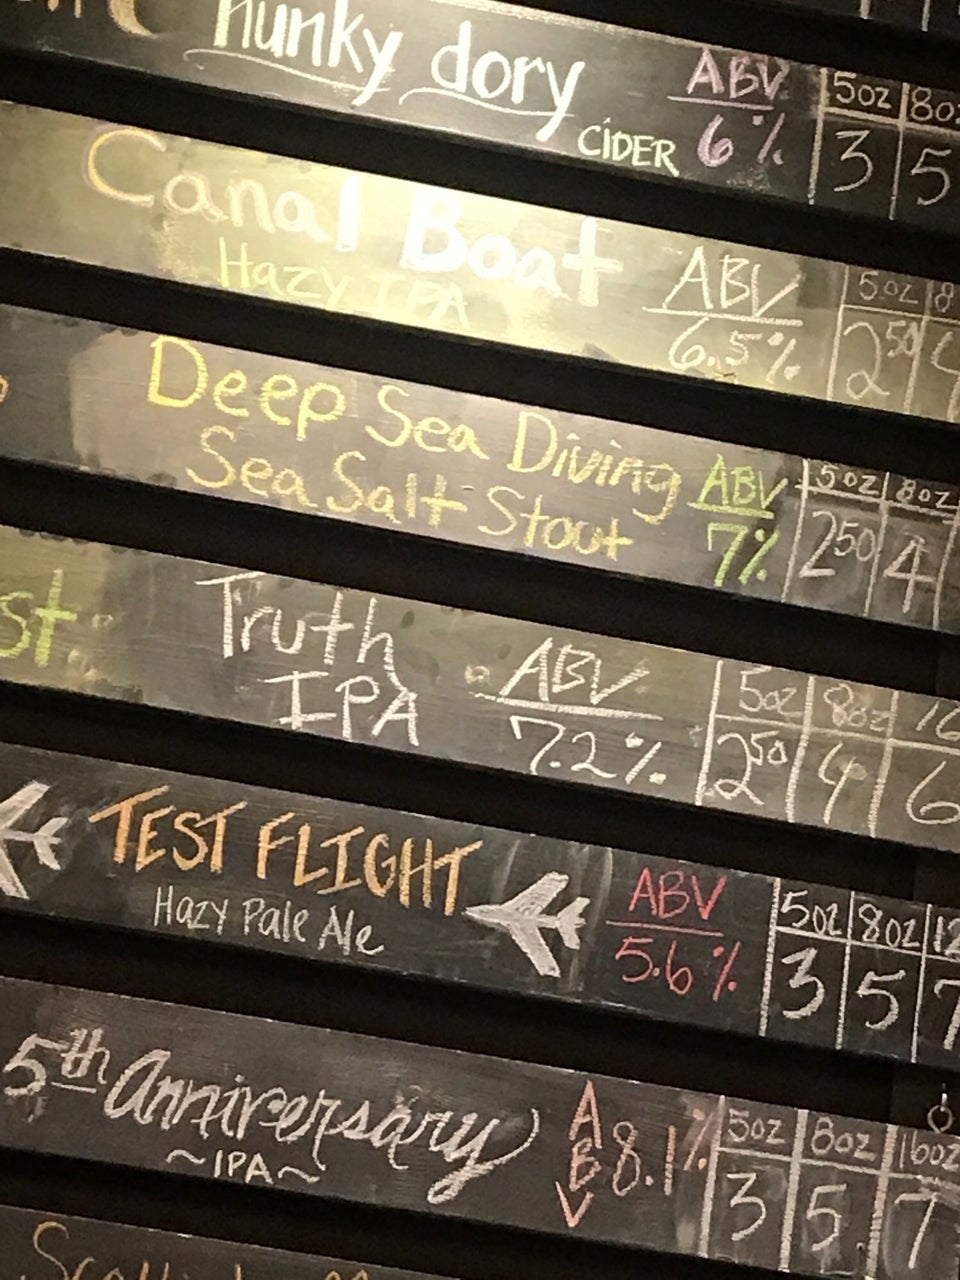 hunky dory
CIDER
ABV
6%
5oz 8oz
3 5
Canal Boat
Hazy IPA
ABV
6.5%
5oz 8
2 50
Deep Sea Diving
Sea Salt Stout
ABV
7%
5oz 8oz
2 50 4
st
Truth
IPA
ABV
7.2%
5oz 8oz 16
2 50 4 6
TEST FLIGHT
Hazy Pale Ale
ABV
5.6%
5oz 8oz 12
3 5 7
5th Anniversary
~IPA~
ABV 8.1%
5oz 8oz 16oz
3 5 7